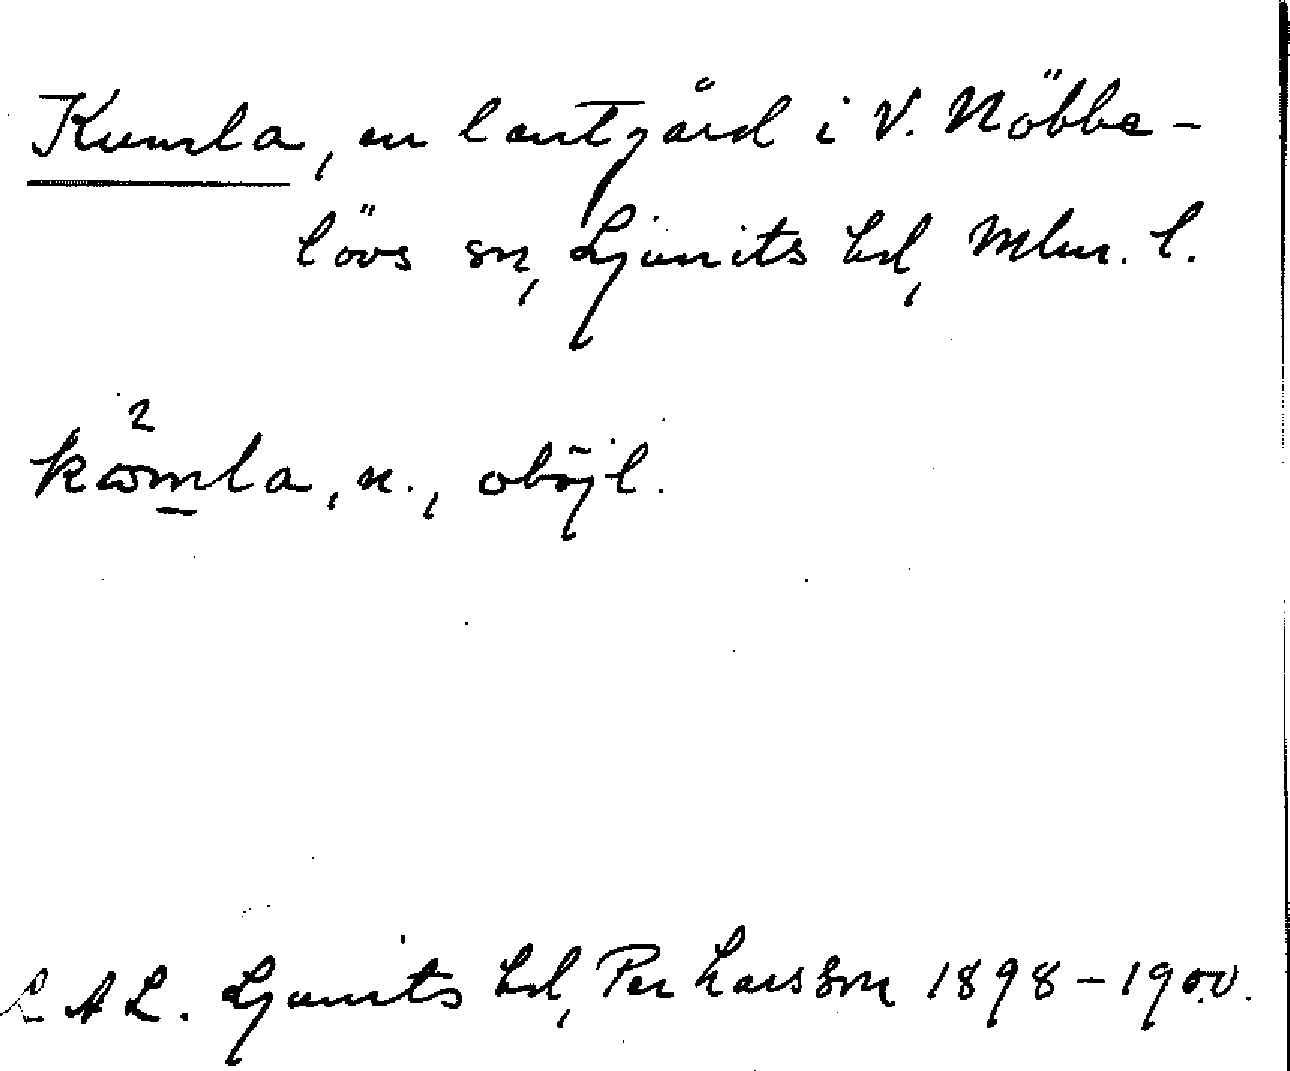 Kumla, en lantgård i V. Nöbbe-
lövs sn, Ljunits hd, Mlm. l.
kømla, n., oböjl.
LAL. Ljunits hd, Per Larsson 1898-1900.